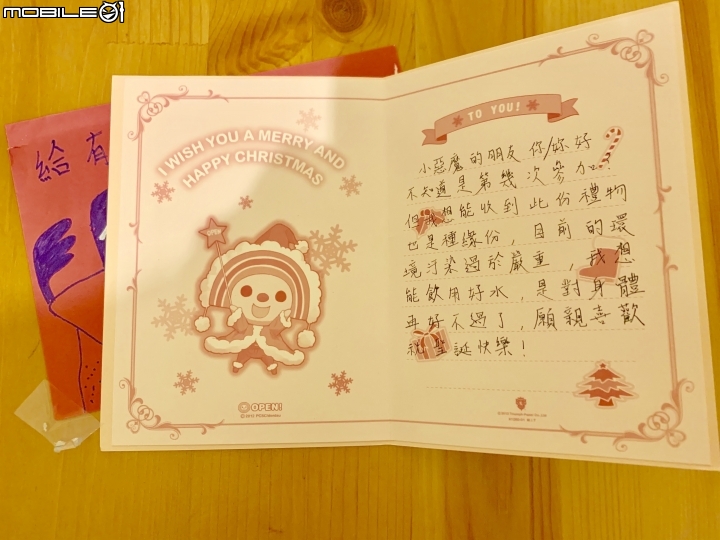 MOBILE01
給有
I WISH YOU A MERRY AND
HAPPY CHRISTMAS
OPEN!
TO YOU!
小惡魔的朋友 你/妳好
不知道是第幾次參加?
但我想能收到此份禮物
也是種緣份,目前的環
境汙染過於嚴重,我想
能飲用好水,是對身體
再好不過了,願親喜歡
祝聖誕快樂!